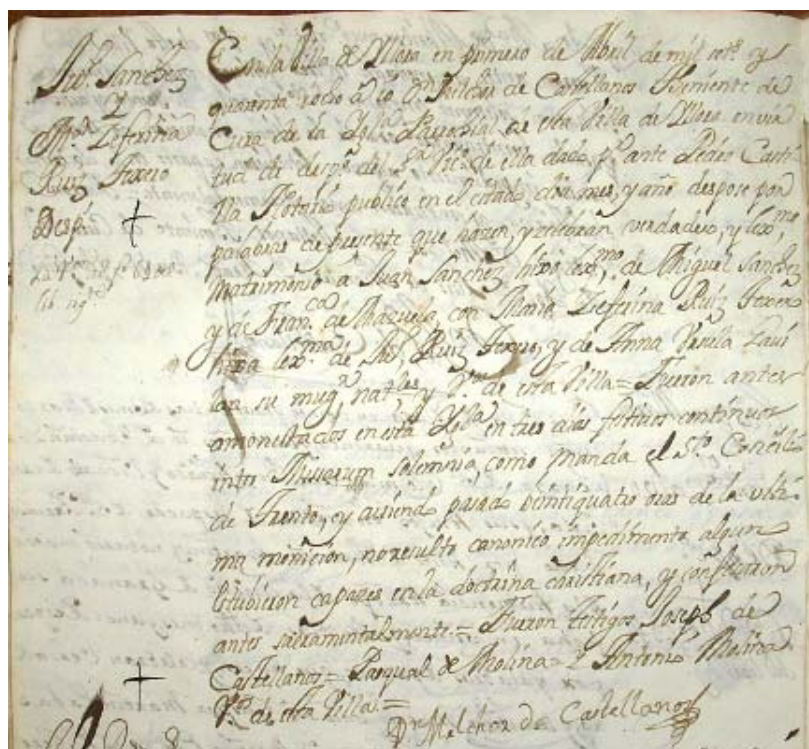 Jun. Sanchez
y
Ma. Zeferina
Ruiz Texero
Desp.
En la Villa de Mora en primero de Abril de mil setS. y
quarenta y ocho a. Yo Dn. Melchor de Castellanos Theniente de
Cura de la Ygla. Parroquial de esta Villa de Mora en vir
tud de desp. del Sr. Vico. de ella dado pr. ante Pedro Casti
lla Notario publico en el citado dia mes, y año despose por
palabras de presente que hazen, y zelebran verdadero, y lexmo.
Matrimonio a Juan Sanchez hixo lexmo. de Miguel Sanchez
y de Franca. de Mazuela, con Maria Zeferina Ruiz Texero
hixa lexma. de Ruiz Texero, y de Anna Vrsula
su mugr. natles. y vs. de esta Villa = Fueron antes
amonestados en esta Ygla. en tres dias festivos continuos
inter Missarum solemnia, como manda el Sto. Concili
de Trento, y aviendo pasado veintiquatro oras de la vlti
ma monicion, no resulto canonico impedimento, algun
estubieron capazes en la doctrina christiana, y confesaron
antes sacramentalmente = Fueron testigos Joseph de
Castellanos = Pasqual de Molina = Y Antonio Molina
Vs. de esta Villa =
Dn. Melchor de Castellanos